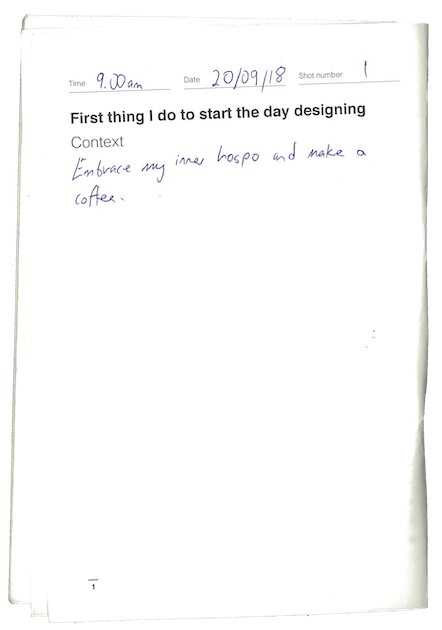 Time 9.00am Date 20/09/18 Shot number 1
First thing I do to start the day designing
Context
Embrace my inner hospo and make a
coffee.
1